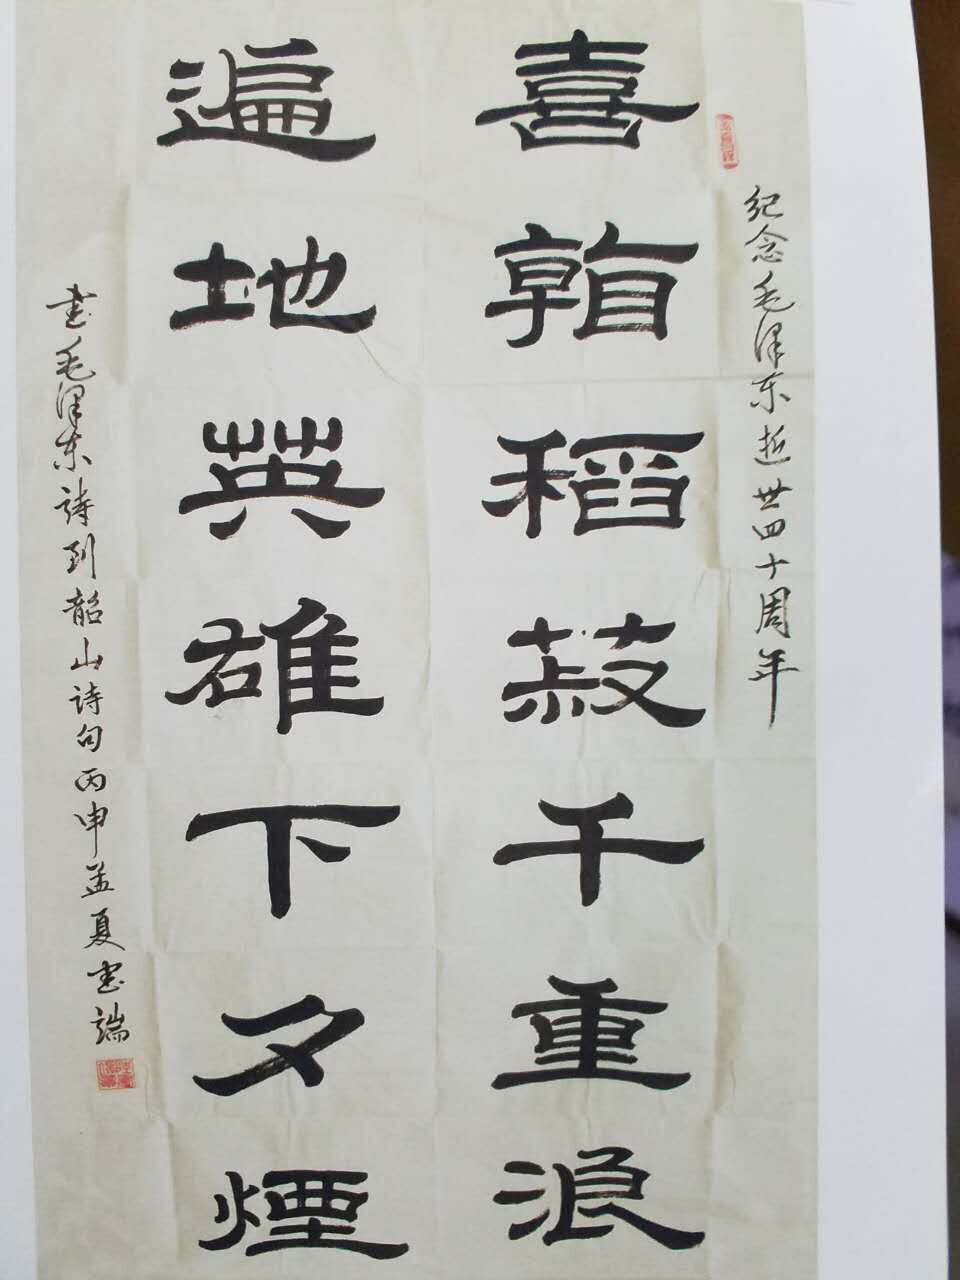 纪念毛泽东逝世四十周年
喜看稻菽千重浪
遍地英雄下夕煙
書毛泽东詩到韶山詩句丙申孟夏書端